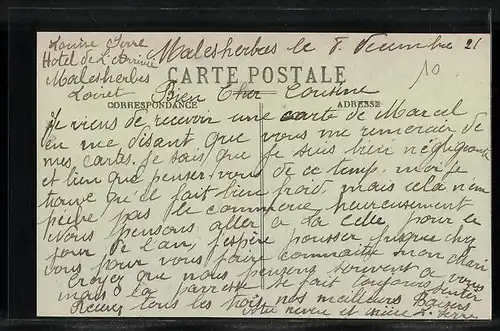 Louise Serre
Hotel de L'
Malesherbes
Loiret
Malesherbes le 8 Decembre 21
10
CARTE POSTALE
Bien Cher Cousine
CORRESPONDANCE
ADRESSE
Je viens de recevoir une carte de Marcel
en me disant que vous me remercier de
mes cartes. Je sais que je suis bien négligeante
et bien que penser-vous de ce temps. moi je
trouve qu'il fait bien froid. mais cela n'em
pêche pas le commerce heureusement
Nous pensons aller a La Celle pour le
jour de l'an, j'espère pousser jusque chez
vous pour vous faire connaitre mon Mari
Croyez que nous pensons souvent a vous
mais la paresse se fait toujours sentir
Recevez tous les trois nos meilleurs Baisers
L. Serre